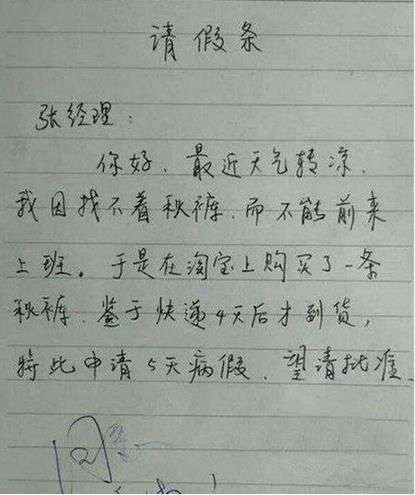 请假条
张经理：
你好，最近天气转凉，
我因找不着秋裤，而不能前来
上班。于是在淘宝上购买了一条
秋裤，鉴于快递4天后才到货，
特此申请5天病假，望请批准。